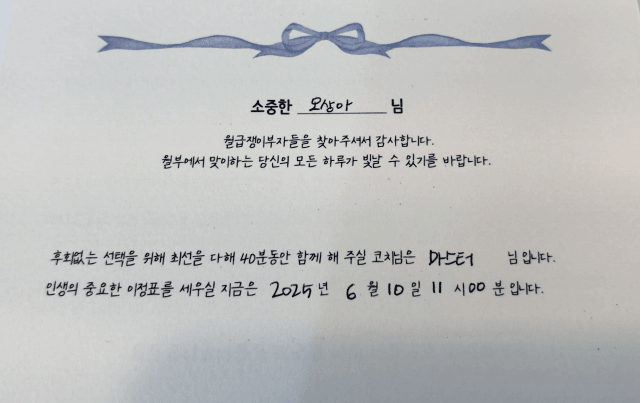 소중한 오상아 님
월급쟁이부자들을 찾아주셔서 감사합니다.
월부에서 맞이하는 당신의 모든 하루가 빛날 수 있기를 바랍니다.
후회없는 선택을 위해 최선을 다해 40분동안 함께 해 주실 코치님은 마스터 님 입니다.
인생의 중요한 이정표를 세우실 지금은 2025년 6월 10일 11시00분입니다.